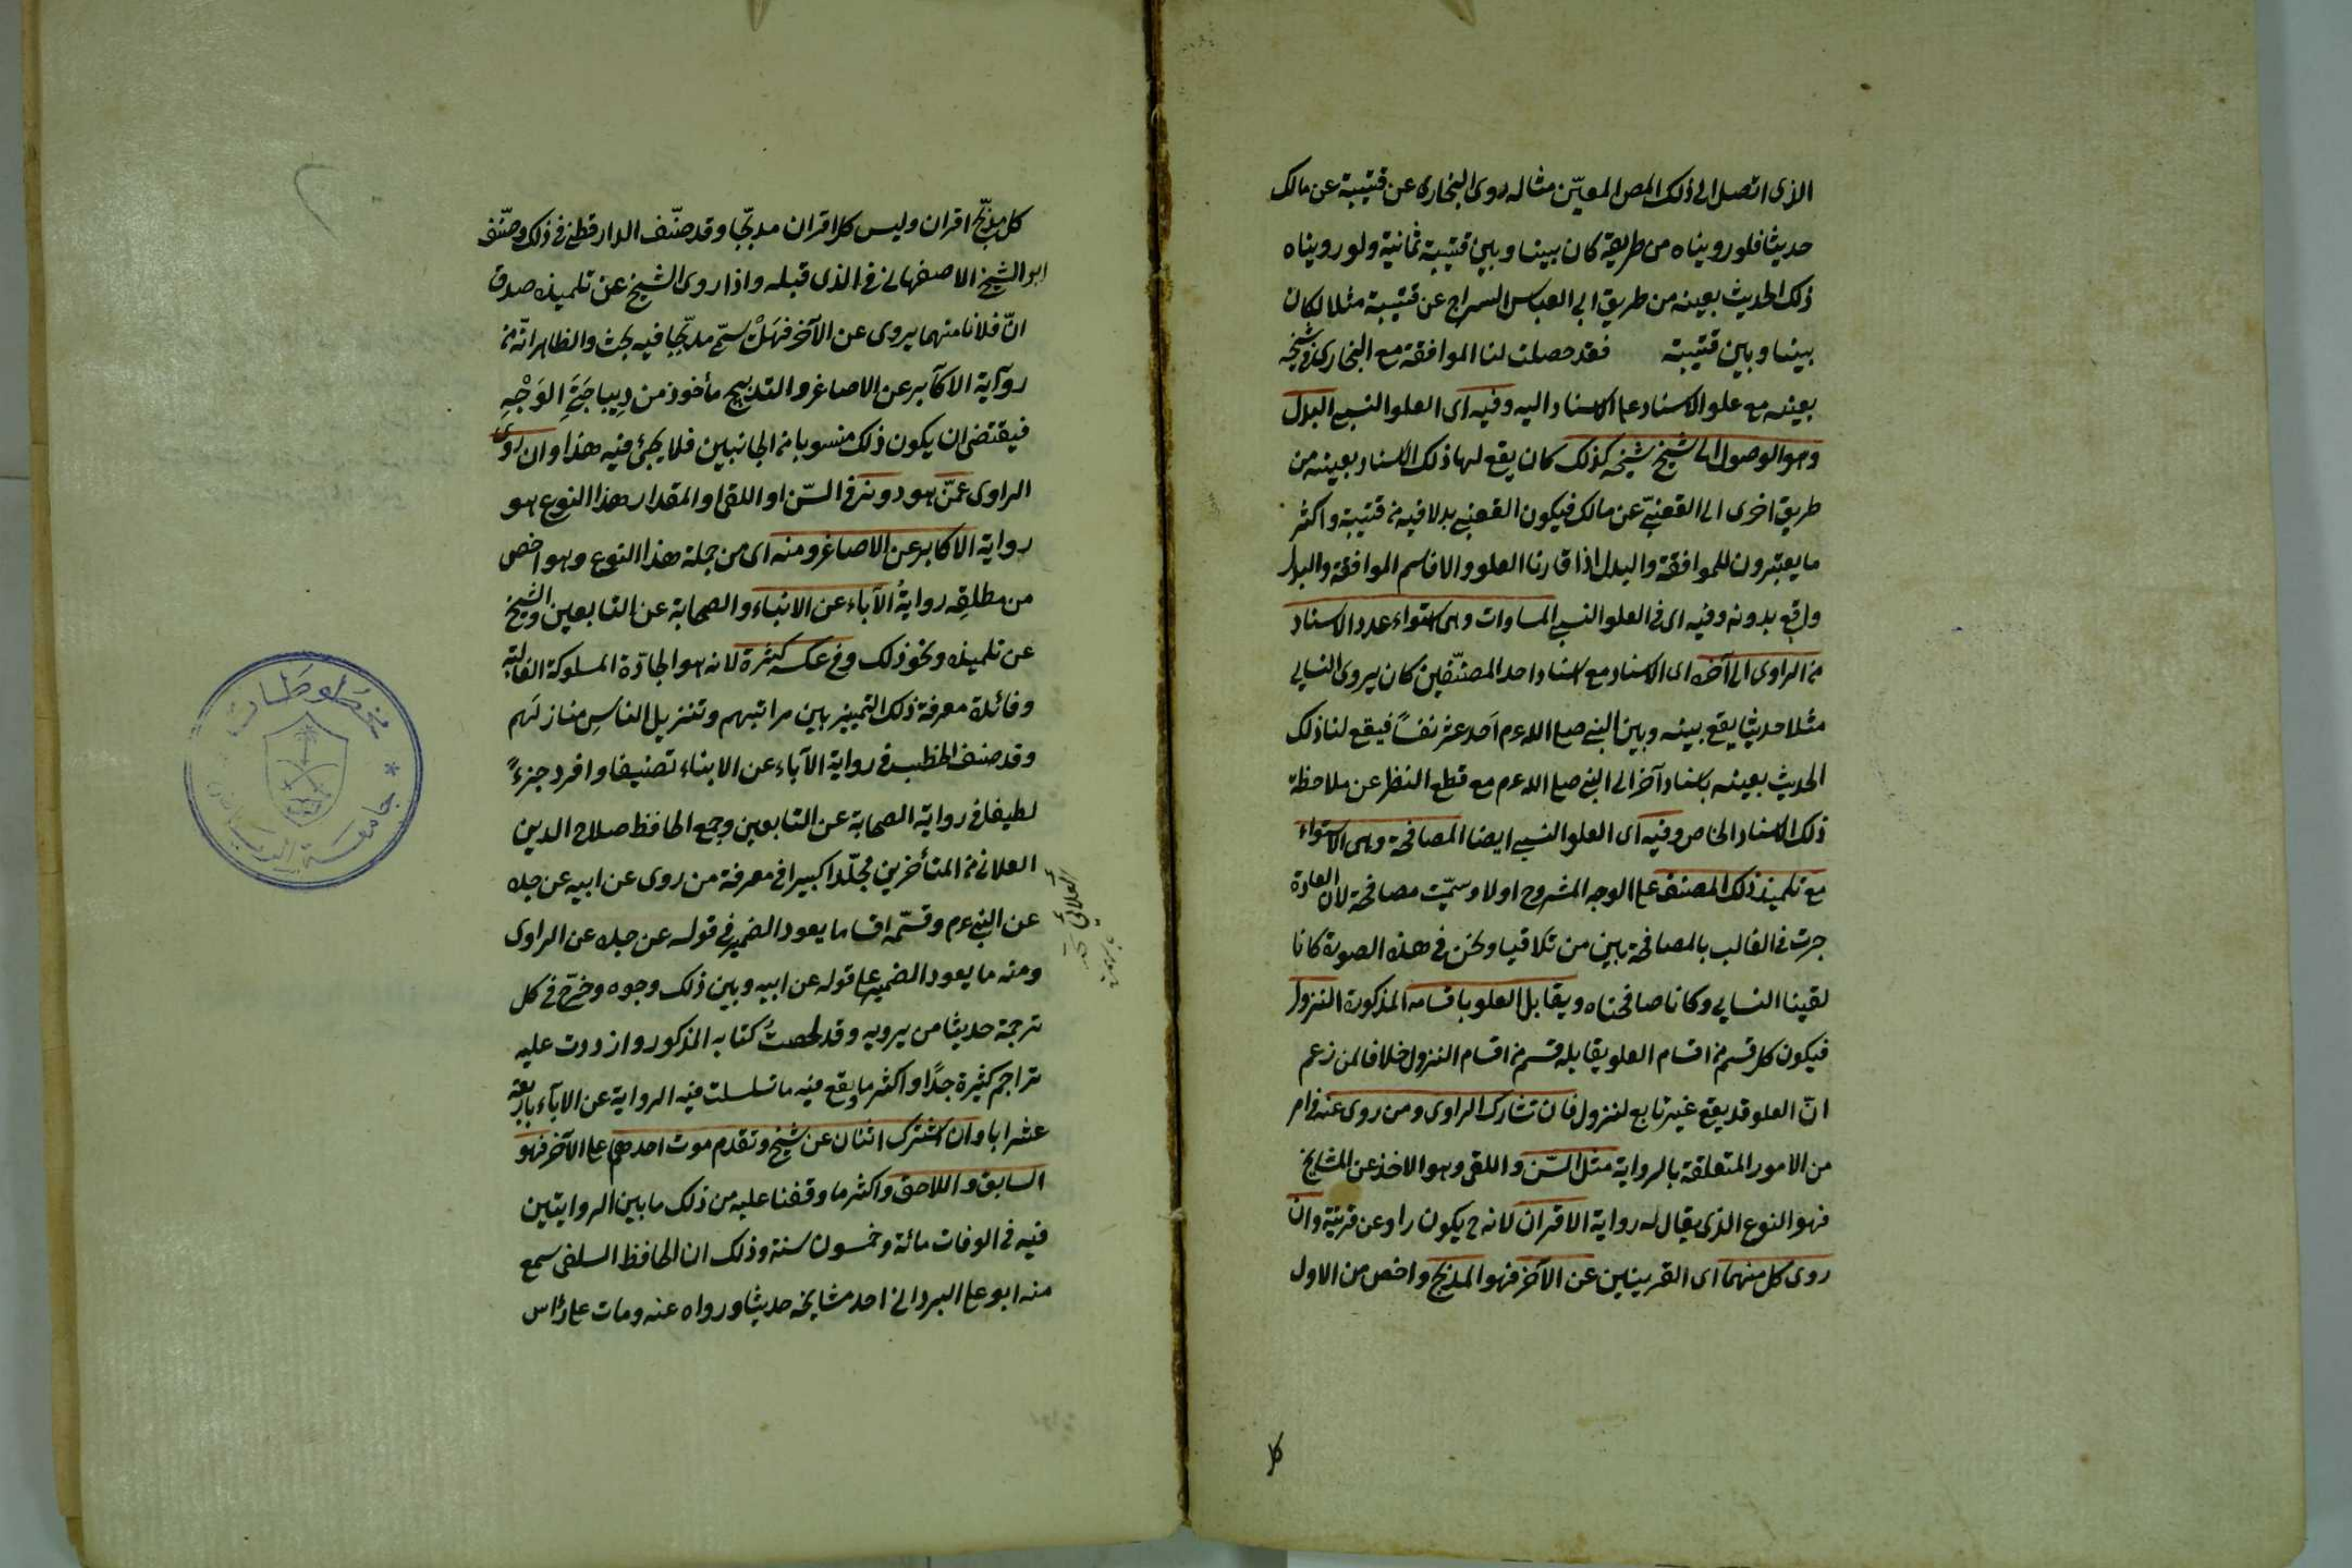 الذى اتصل الى ذلك المص المعيّن مثاله روى البخارى عن قتيبة عن مالك
حديثا فلو رويناه من طريقه كان بيننا وبين قتيبة ثمانية ولو روينا
ذلك الحديث بعينه من طريق ابى العباس السراج عن قتيبة مثلا لكان
بيننا وبين قتيبة فقد حصلت لنا الموافقة مع البخارى فى شيخه
بعينه مع علو الاسناد على الاسناد اليه وفيه اى العلو النسبى البدل
وهو الوصول الى شيخ شيخه كذلك كان يقع لها ذلك الاسناد بعينه من
طريق اخرى الى القعنبىّ عن مالك فيكون القعنبى بدلا فيه من قتيبة واكثر
ما يعتبرون للموافقة والبدل اذا قارنا العلو والا فاسم الموافقة والبدل
واقع بدونه وفيه اى فى العلو النسبى المساوات وهى استواء عدد الاسناد
من الراوى الى آخره اى الاسناد مع اسناد احد المصنّفين كان يروى النسايى
مثلا حديثا يقع بينه وبين النبى صلى الله عم اَحد عشر نفساً فيقع لنا ذلك
الحديث بعينه باسناد آخر الى النبى صلى الله عم مع قطع النظر عن ملاحظة
ذلك الاسناد الخاص وفيه اى العلو النسبى ايضا المصافحة وهى الاستواء
مع تلميذ ذلك المصنف على الوجه المشروح اولا وسمّيت مصافحة لان العادة
جرت فى الغالب بالمصافحة بين من تلاقيا ونحن فى هذه الصورة كانا
لقينا النسايى وكانا صافحناه ويقابل العلو باقسامه المذكورة النزول
فيكون كل قسم من اقسام العلو يقابله قسم من اقسام النزول خلافا لمن زعم
انّ العلو قد يقع غير تابع لنزول فان تشارك الراوى ومن روى عنه فى امر
من الامور المتعلقة بالرواية مثل السّن واللقى وهو الاخذ عن المشايخ
فهو النوع الذى يقال له رواية الاقران لانه ح يكون راو عن قرينه وان
روى كل منهما اى القرينين عن الآخر فهو المدبّج واخص من الاول
كل
كل مدبّج اقران وليس كل اقران مدبّجا وقد صنّف الدارقطنى فى ذلك وصنّف
ابو الشيخ الاصفهانى فى الذى قبله واذا روى الشيخ عن تلميذه صدق
انّ فلانا منهما يروى عن الآخر فهَلْ يسمّى مدبّجا فيه بحث والظاهر انّه من
رواية الاكابر عن الاصاغر والتدبيج مأخوذ من دِيباجَتَىِ الوَجْهِ
فيقتضى ان يكون ذلك منسوبا من الجانبين فلا يجئ فيه هذا وان روى
الراوى عمّن هو دونه فى السّن او اللقى او المقدار هذا النوع هو
رواية الاكابر عن الاصاغر ومنه اى من جملة هذا النوع وهو اخص
من مطلقِه روايةُ الآباء عن الابناء والصحابة عن التابعين والشيخ
عن تلميذه ونحو ذلك وفى عكسه كثرة لانه هو الجادّة المسلوكة الغالبة
وفائدة معرفة ذلك التمييز بين مراتبهم وتنزيل الناسِ منازلَهم
وقد صنف الخطيب فى رواية الآباء عن الابناء تصنيفا وافرد جزءً
لطيفا فى رواية الصحابة عن التابعين وجمع الحافظ صلاح الدين
العلائى من المتأخرين مجلّدا كبيرا فى معرفة من روى عن ابيه عن جده
عن النبى عم وقسّمه اقساما يعود الضمير فى قوله عن جده عن الراوى
ومنه ما يعود الضمير على قوله عن ابيه وبين ذلك وجوه وخرّج فى كل
ترجمة حديثا من يرويه وقد لخصتُ كتابه المذكور وازددت عليه
تراجم كثيرة جدًا واكثر ما وقع فيه ما تسلسلت فيه الرواية عن الآباء باربعة
عشر ابا وان اشترك اثنان عن شيخ وتقدم موت احدهما على الآخر فهو
السابق واللاحق واكثر ما وقفنا عليه من ذلك ما بين الروايتين
فيه فى الوفات مائة وخمسون سنة وذلك ان الحافظ السلفى سمع
منه ابو على البردانى احد مشايخه حديثا ورواه عنه ومات على رأس
العلائى
مخطوطات
* جامعة الرياض